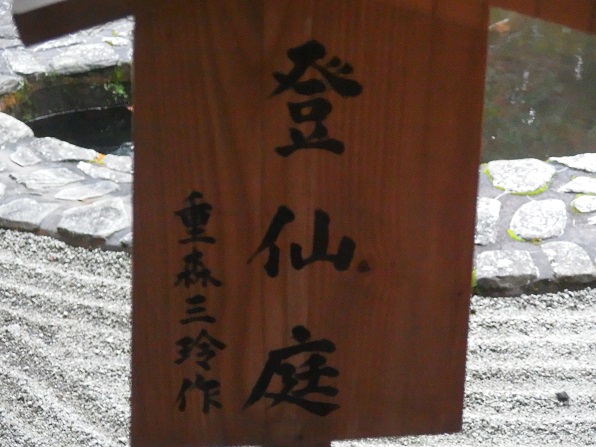 登仙庭
重森三玲作